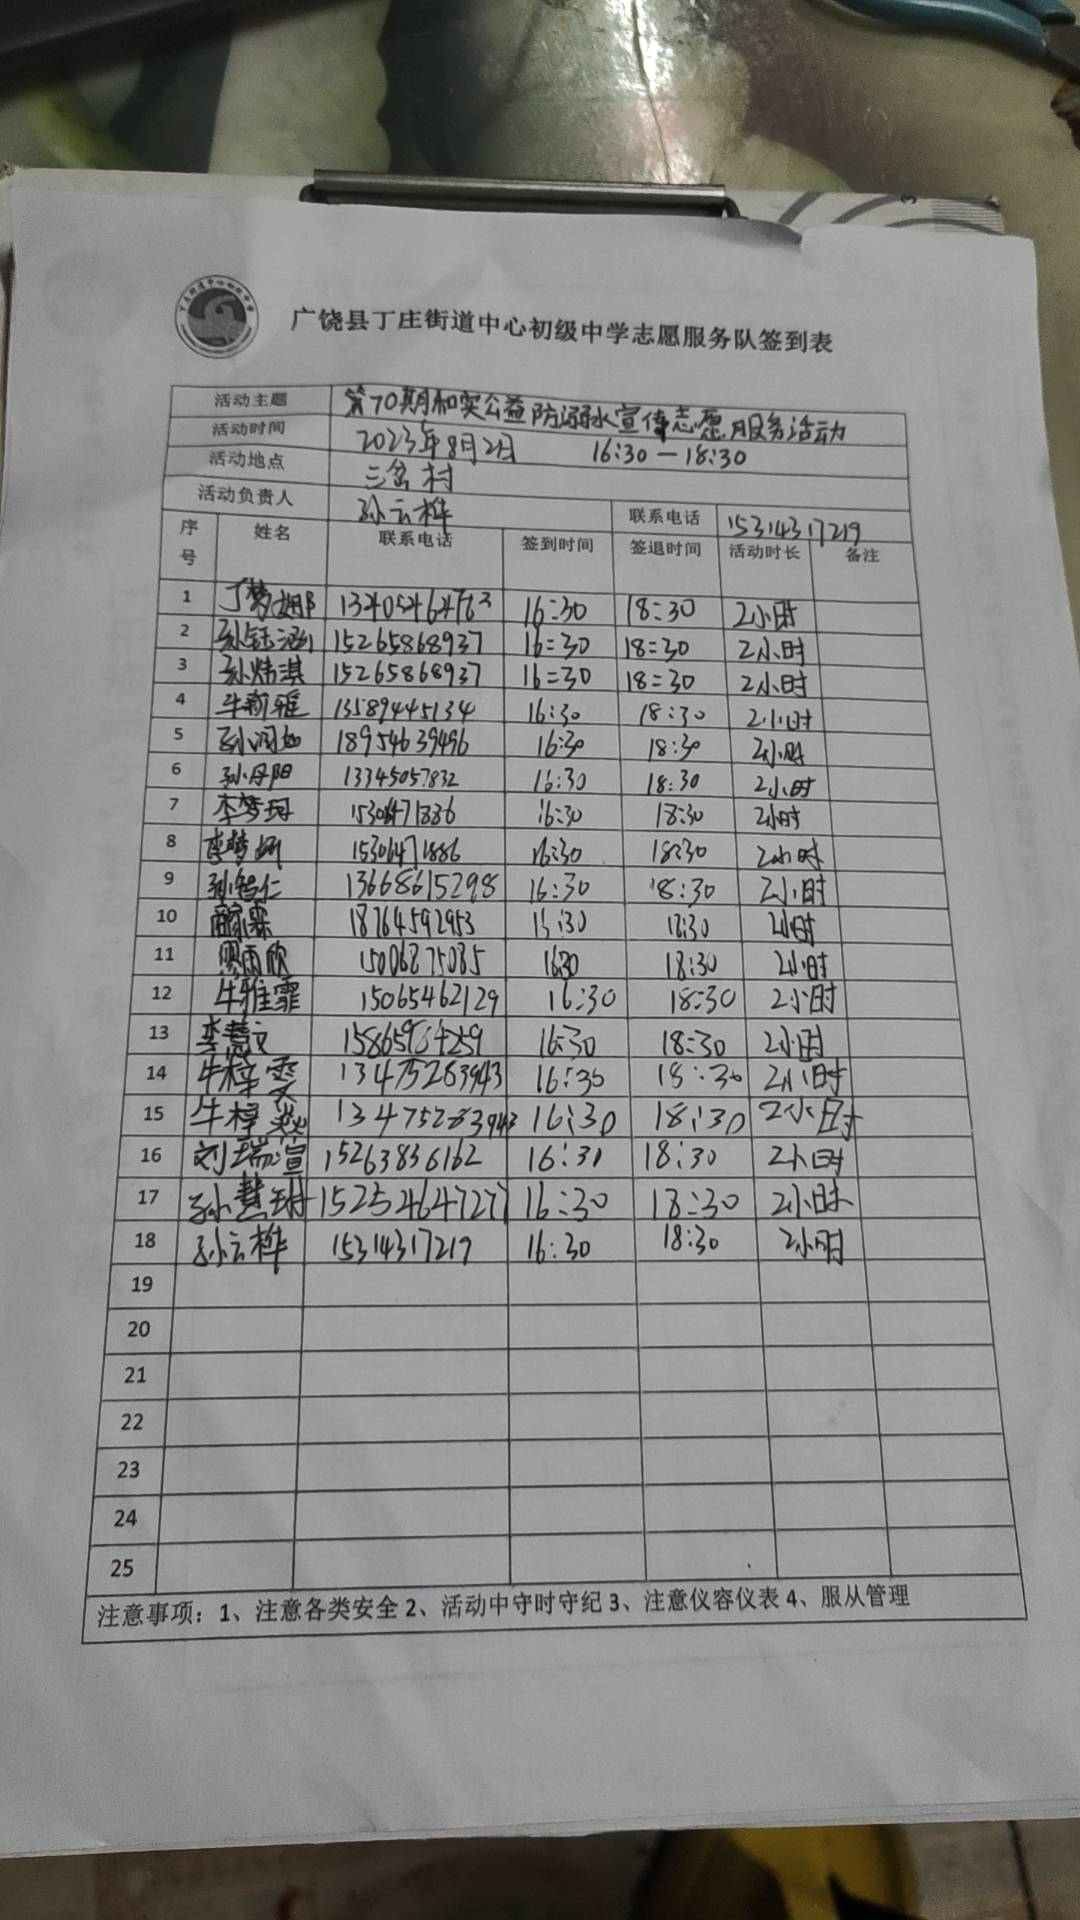 广饶县丁庄街道中心初级中学志愿服务队签到表
活动主题 第70期和实公益防溺水宣传志愿服务活动
活动时间 2023年8月2日 16:30—18:30
活动地点 三岔村
活动负责人 孙云桦 联系电话 15314317219
序号 姓名 联系电话 签到时间 签退时间 活动时长 备注
1 丁梦娜 13405464763 16:30 18:30 2小时
2 孙钰涵 15265868937 16:30 18:30 2小时
3 孙炜淇 15265868937 16:30 18:30 2小时
4 牛新雅 13589445134 16:30 18:30 2小时
5 孙润如 18954639496 16:30 18:30 2小时
6 孙丹阳 13345057832 16:30 18:30 2小时
7 李梦珂 15306471886 16:30 18:30 2小时
8 李梦 15306471886 16:30 18:30 2小时
9 孙智仁 13668615298 16:30 18:30 2小时
10 18764592953 18:30 2小时
11 雨欣 15006875085 16:30 18:30 2小时
12 牛雅霏 15065462129 16:30 18:30 2小时
13 李慧文 15865984259 16:30 18:30 2小时
14 牛梓雯 13475283943 16:30 18:30 2小时
15 牛梓焱 13475283943 16:30 18:30 2小时
16 刘瑞渲 15263836162 16:30 18:30 2小时
17 孙慧珊 15252464727 16:30 18:30 2小时
18 孙云桦 15314317219 16:30 18:30 2小时
19
20
21
22
23
24
25
注意事项：1、注意各类安全 2、活动中守时守纪 3、注意仪容仪表 4、服从管理